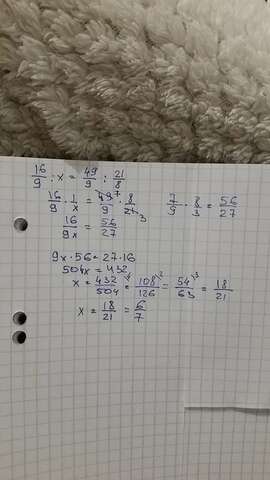 16/9 : x = 49/9 : 21/8
16/9 · 1/x = 49 7/9 · 8/21 3    7/9 · 8/3 = 56/27
16/9x = 56/27
9x · 56 = 27 · 16
504x = 432
x = 432/504 = 108/126 = 54/63 = 18/21
x = 18/21 = 6/7